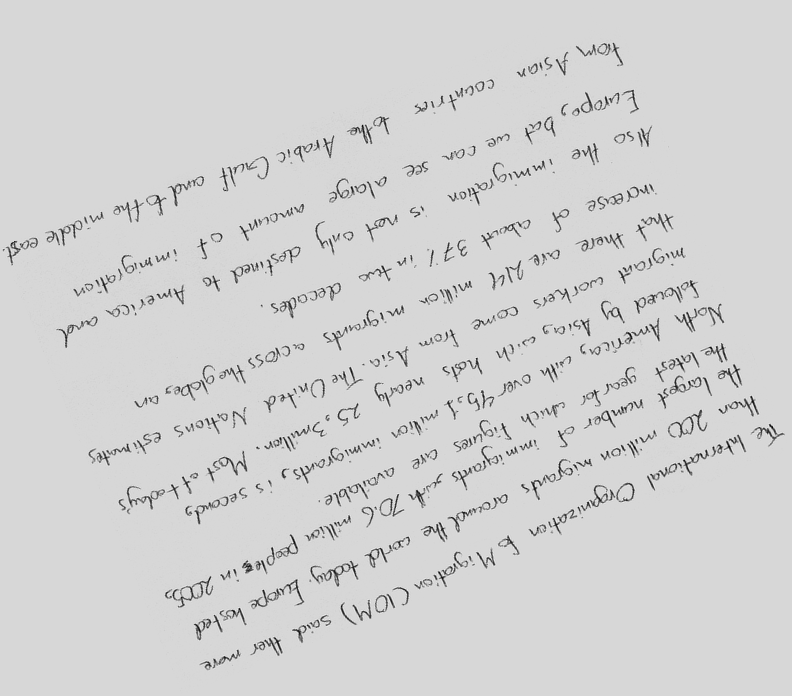 The International Organization fo Migration (IOM) said ther more
than 200 million migrants around the world today. Europe hosted
the largest number of immigrants with 70.6 million people in 2005,
the latest year for which figures are available.
North America, with over 45,1 million immigrants, is second,
followed by Asia, which hosts nearly 25,3 million. Most of today's
migrant workers come from Asia. The United Nations estimates
that there are 214 million migrants across the globe, an
increase of about 37% in two decades.
Also the immigration is not only destined to America and
Europe, but we can see alarge amount of immigration
from Asian countries to the Arabic Gulf and to the middle east.